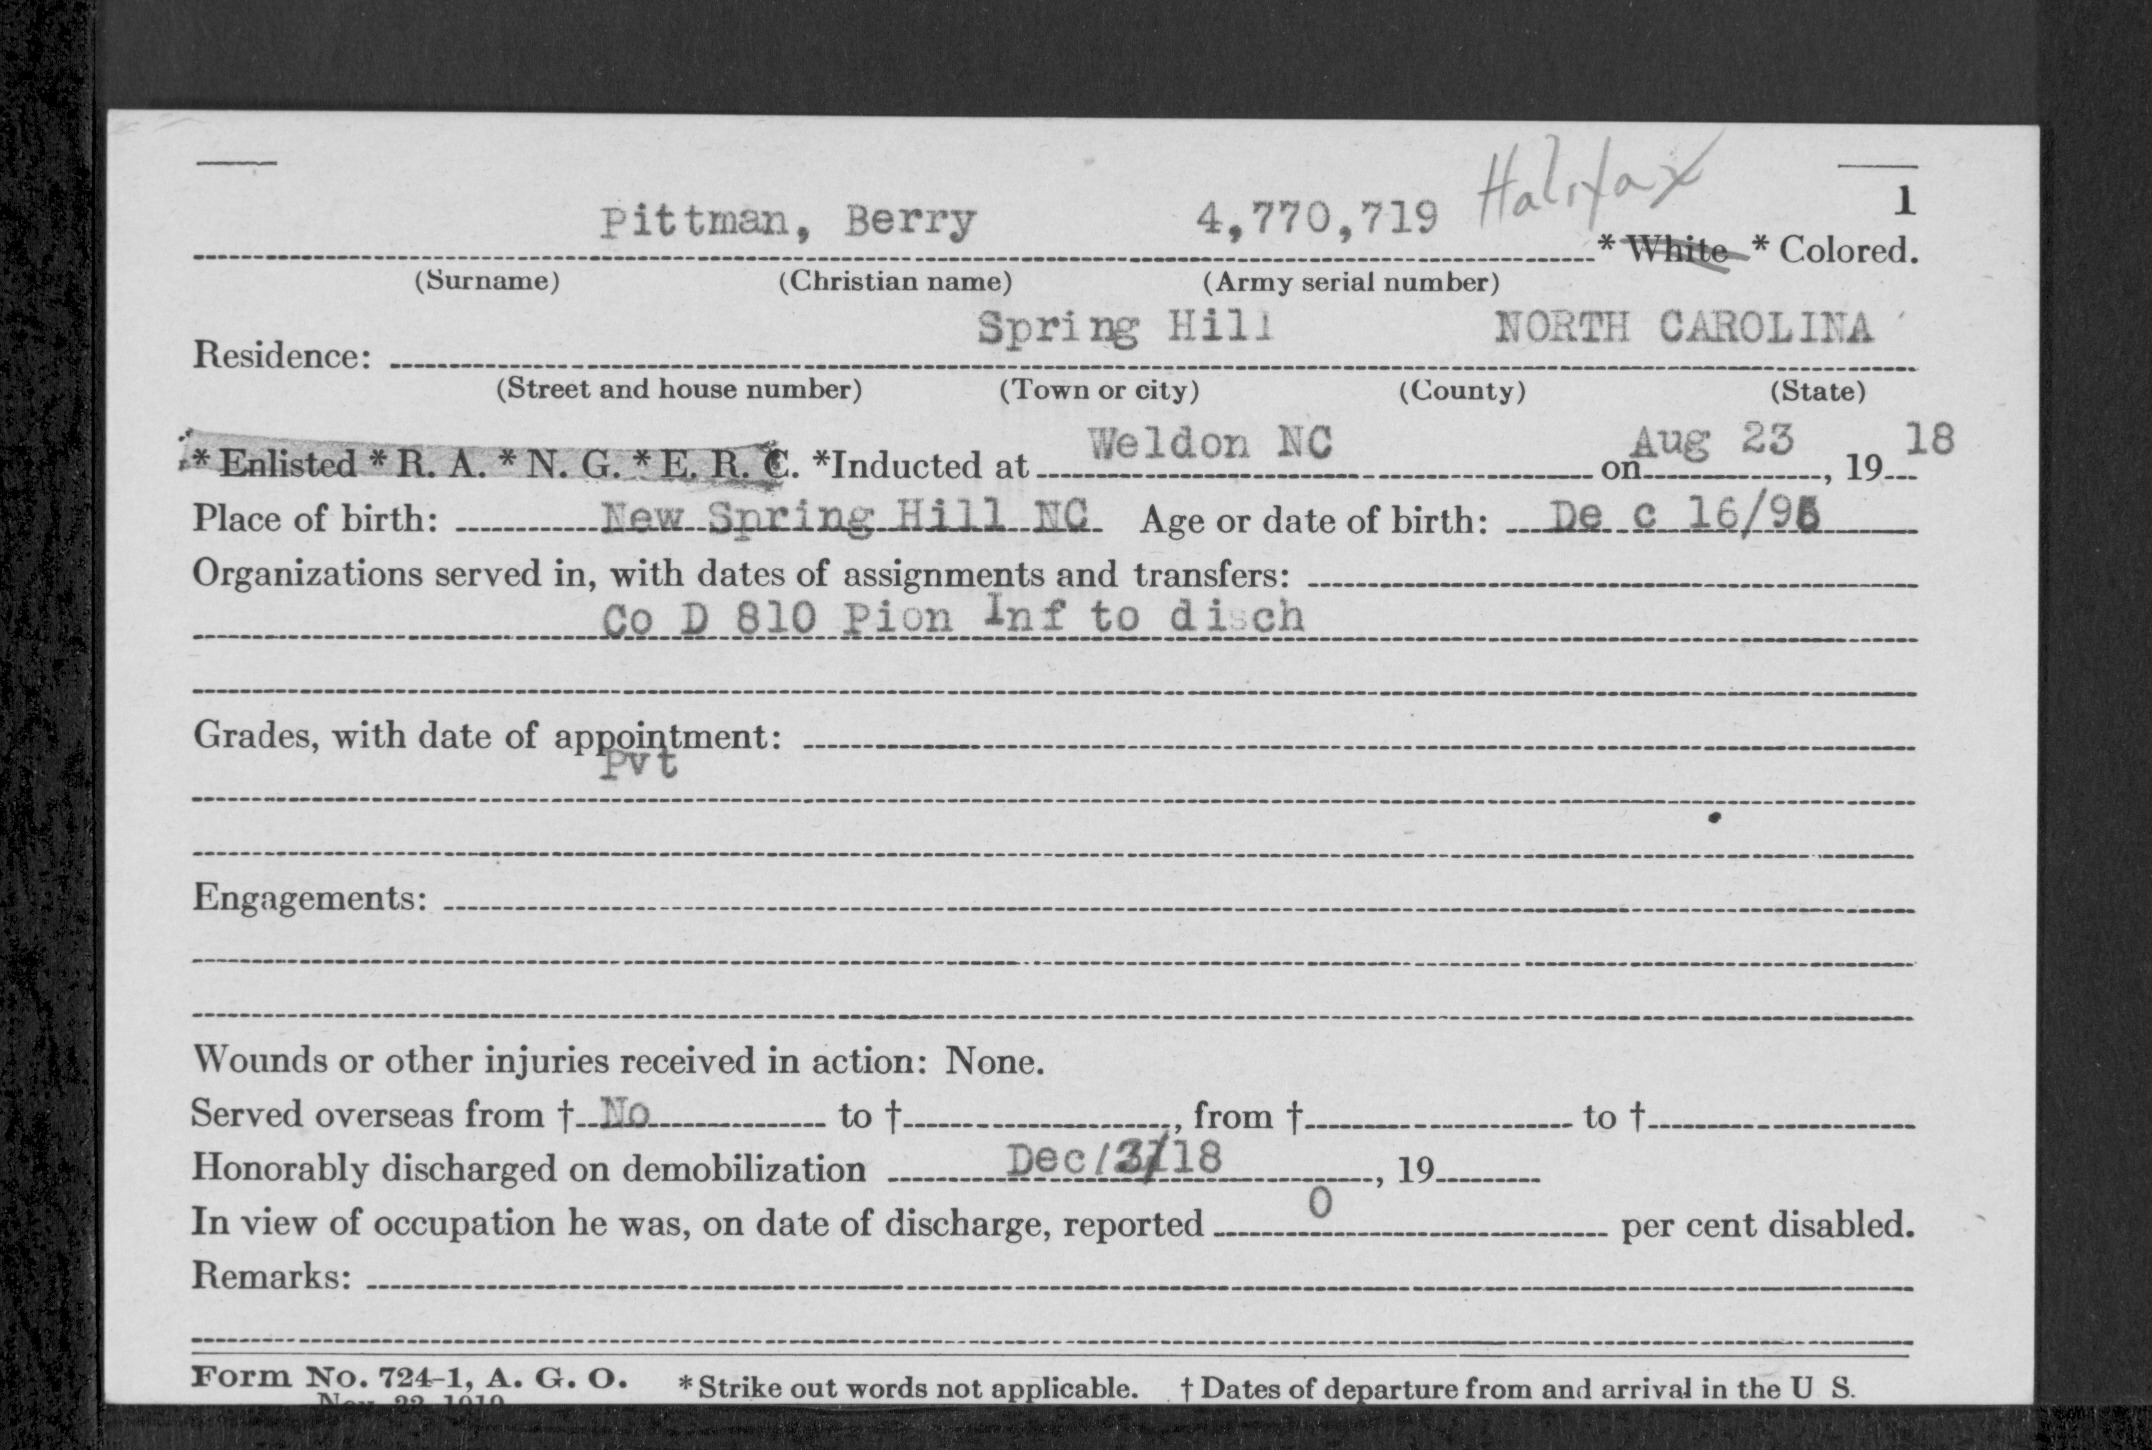 Halifax
1
Pittman, Berry 4,770,719 * White * Colored.
(Surname) (Christian name) (Army serial number)
Spring Hill NORTH CAROLINA
Residence:
(Street and house number) (Town or city) (County) (State)
* Enlisted * R. A. * N. G. * E. R. C. *Inducted at Weldon NC on Aug 23, 19 18
Place of birth: New Spring Hill NC Age or date of birth: De c 16/95
Organizations served in, with dates of assignments and transfers:
Co D 810 Pion Inf to disch
Grades, with date of appointment:
Pvt
Engagements:
Wounds or other injuries received in action: None.
Served overseas from † No to †, from † to †
Honorably discharged on demobilization Dec / 18, 19
In view of occupation he was, on date of discharge, reported 0 per cent disabled.
Remarks:
Form No. 724-1, A. G. O. * Strike out words not applicable. † Dates of departure from and arrival in the U S.
Nov. 22 1919